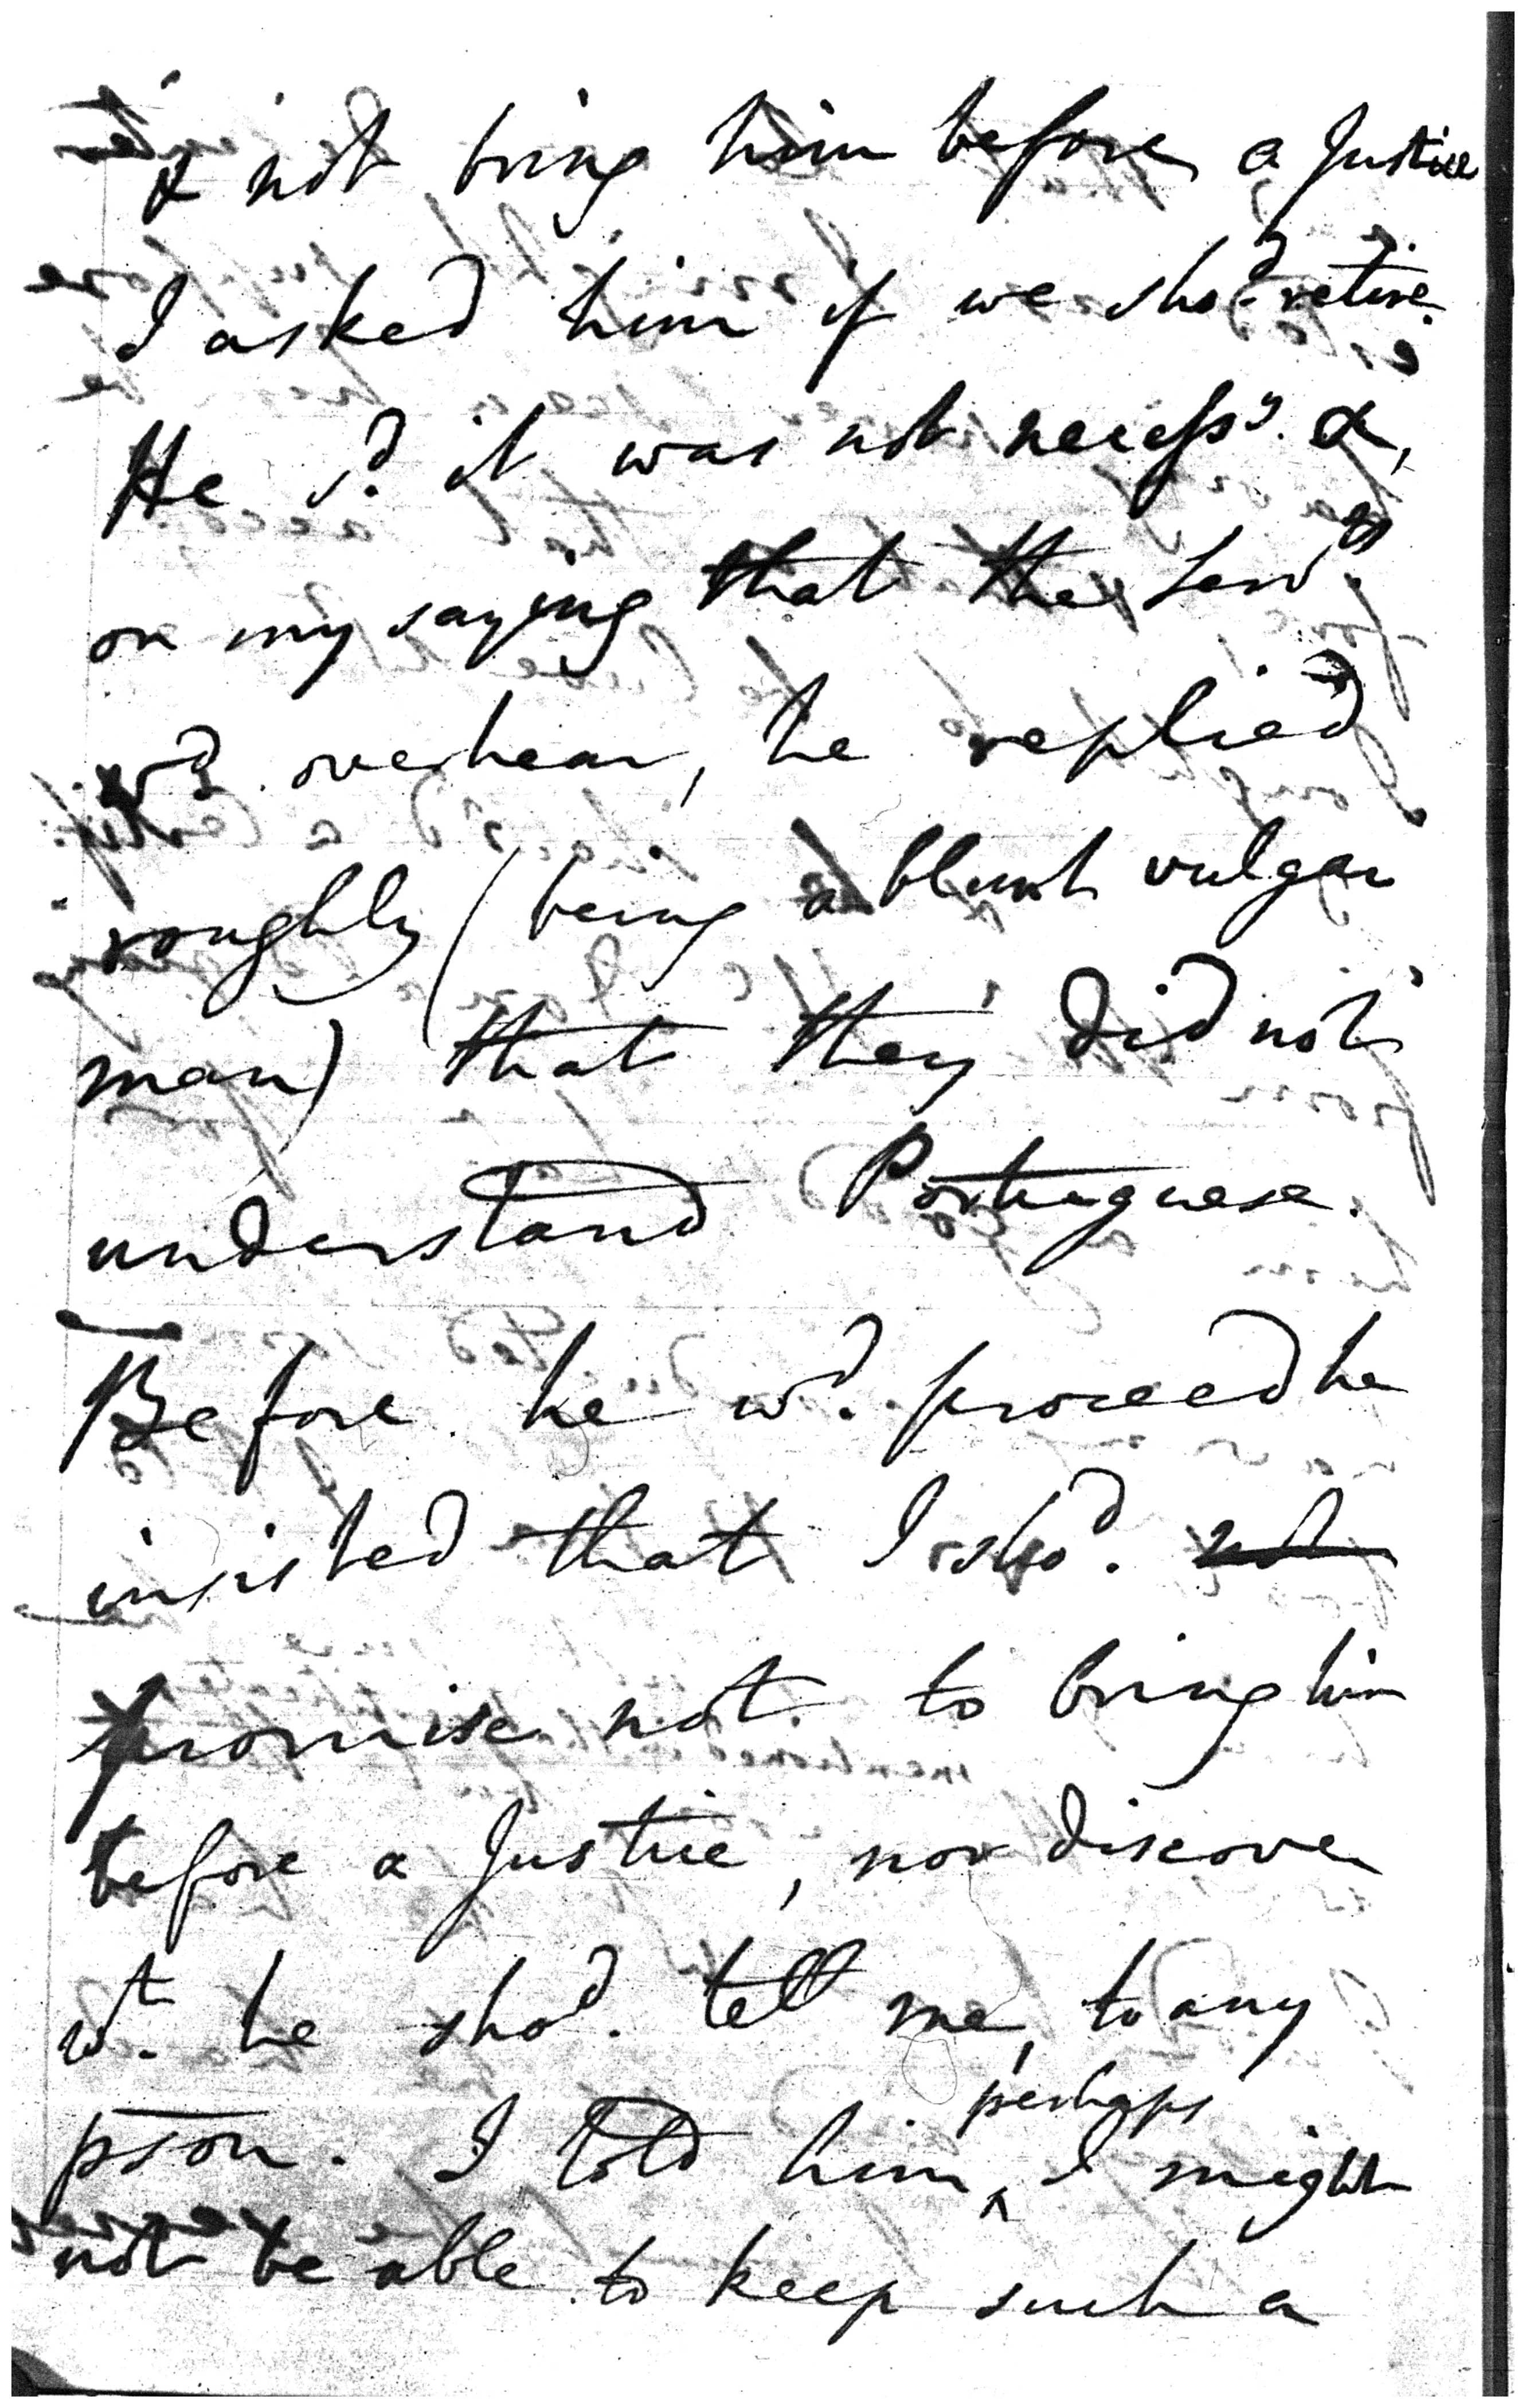 & not bring him before a Justice
I asked him if we sho.d retire.
He s.d it was not necess.y &,
on my saying that the Serv.ts
w.d overhear, he replied
roughly (being a blunt vulgar
man) that they did not
understand Portuguese.
Before he w.d proceed he
insisted that I sho.d not
promise not to bring him
before a Justice, nor discover
w.t he sho.d tell me, to any
pson. I told him ^ perhaps I might
not be able to keep such a